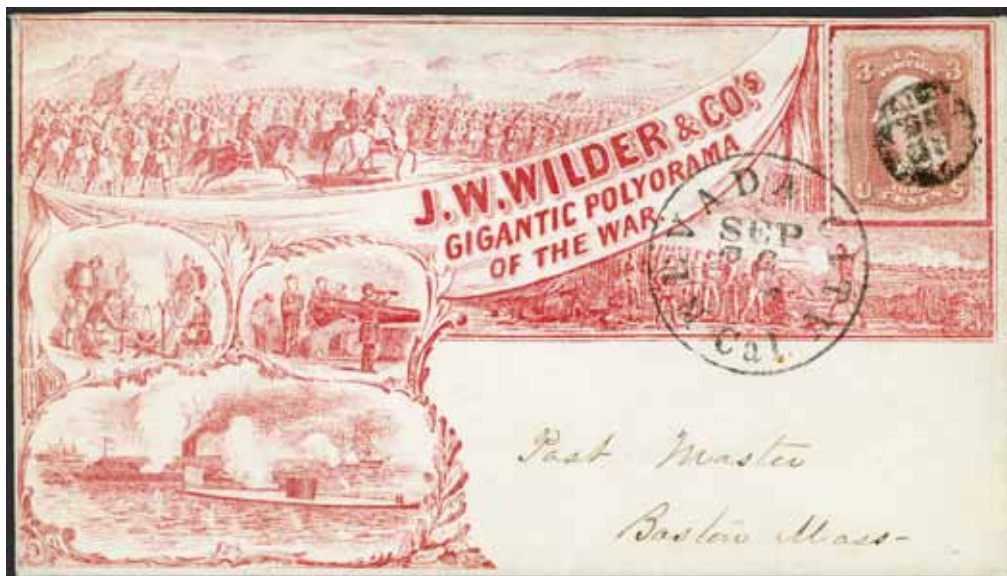 J.W. WILDER & CO.'S
GIGANTIC POLYORAMA
OF THE WAR.
3 3
U S
CENTS
NEVADA CITY
SEP
Cal.
Post Master
Boston Mass-